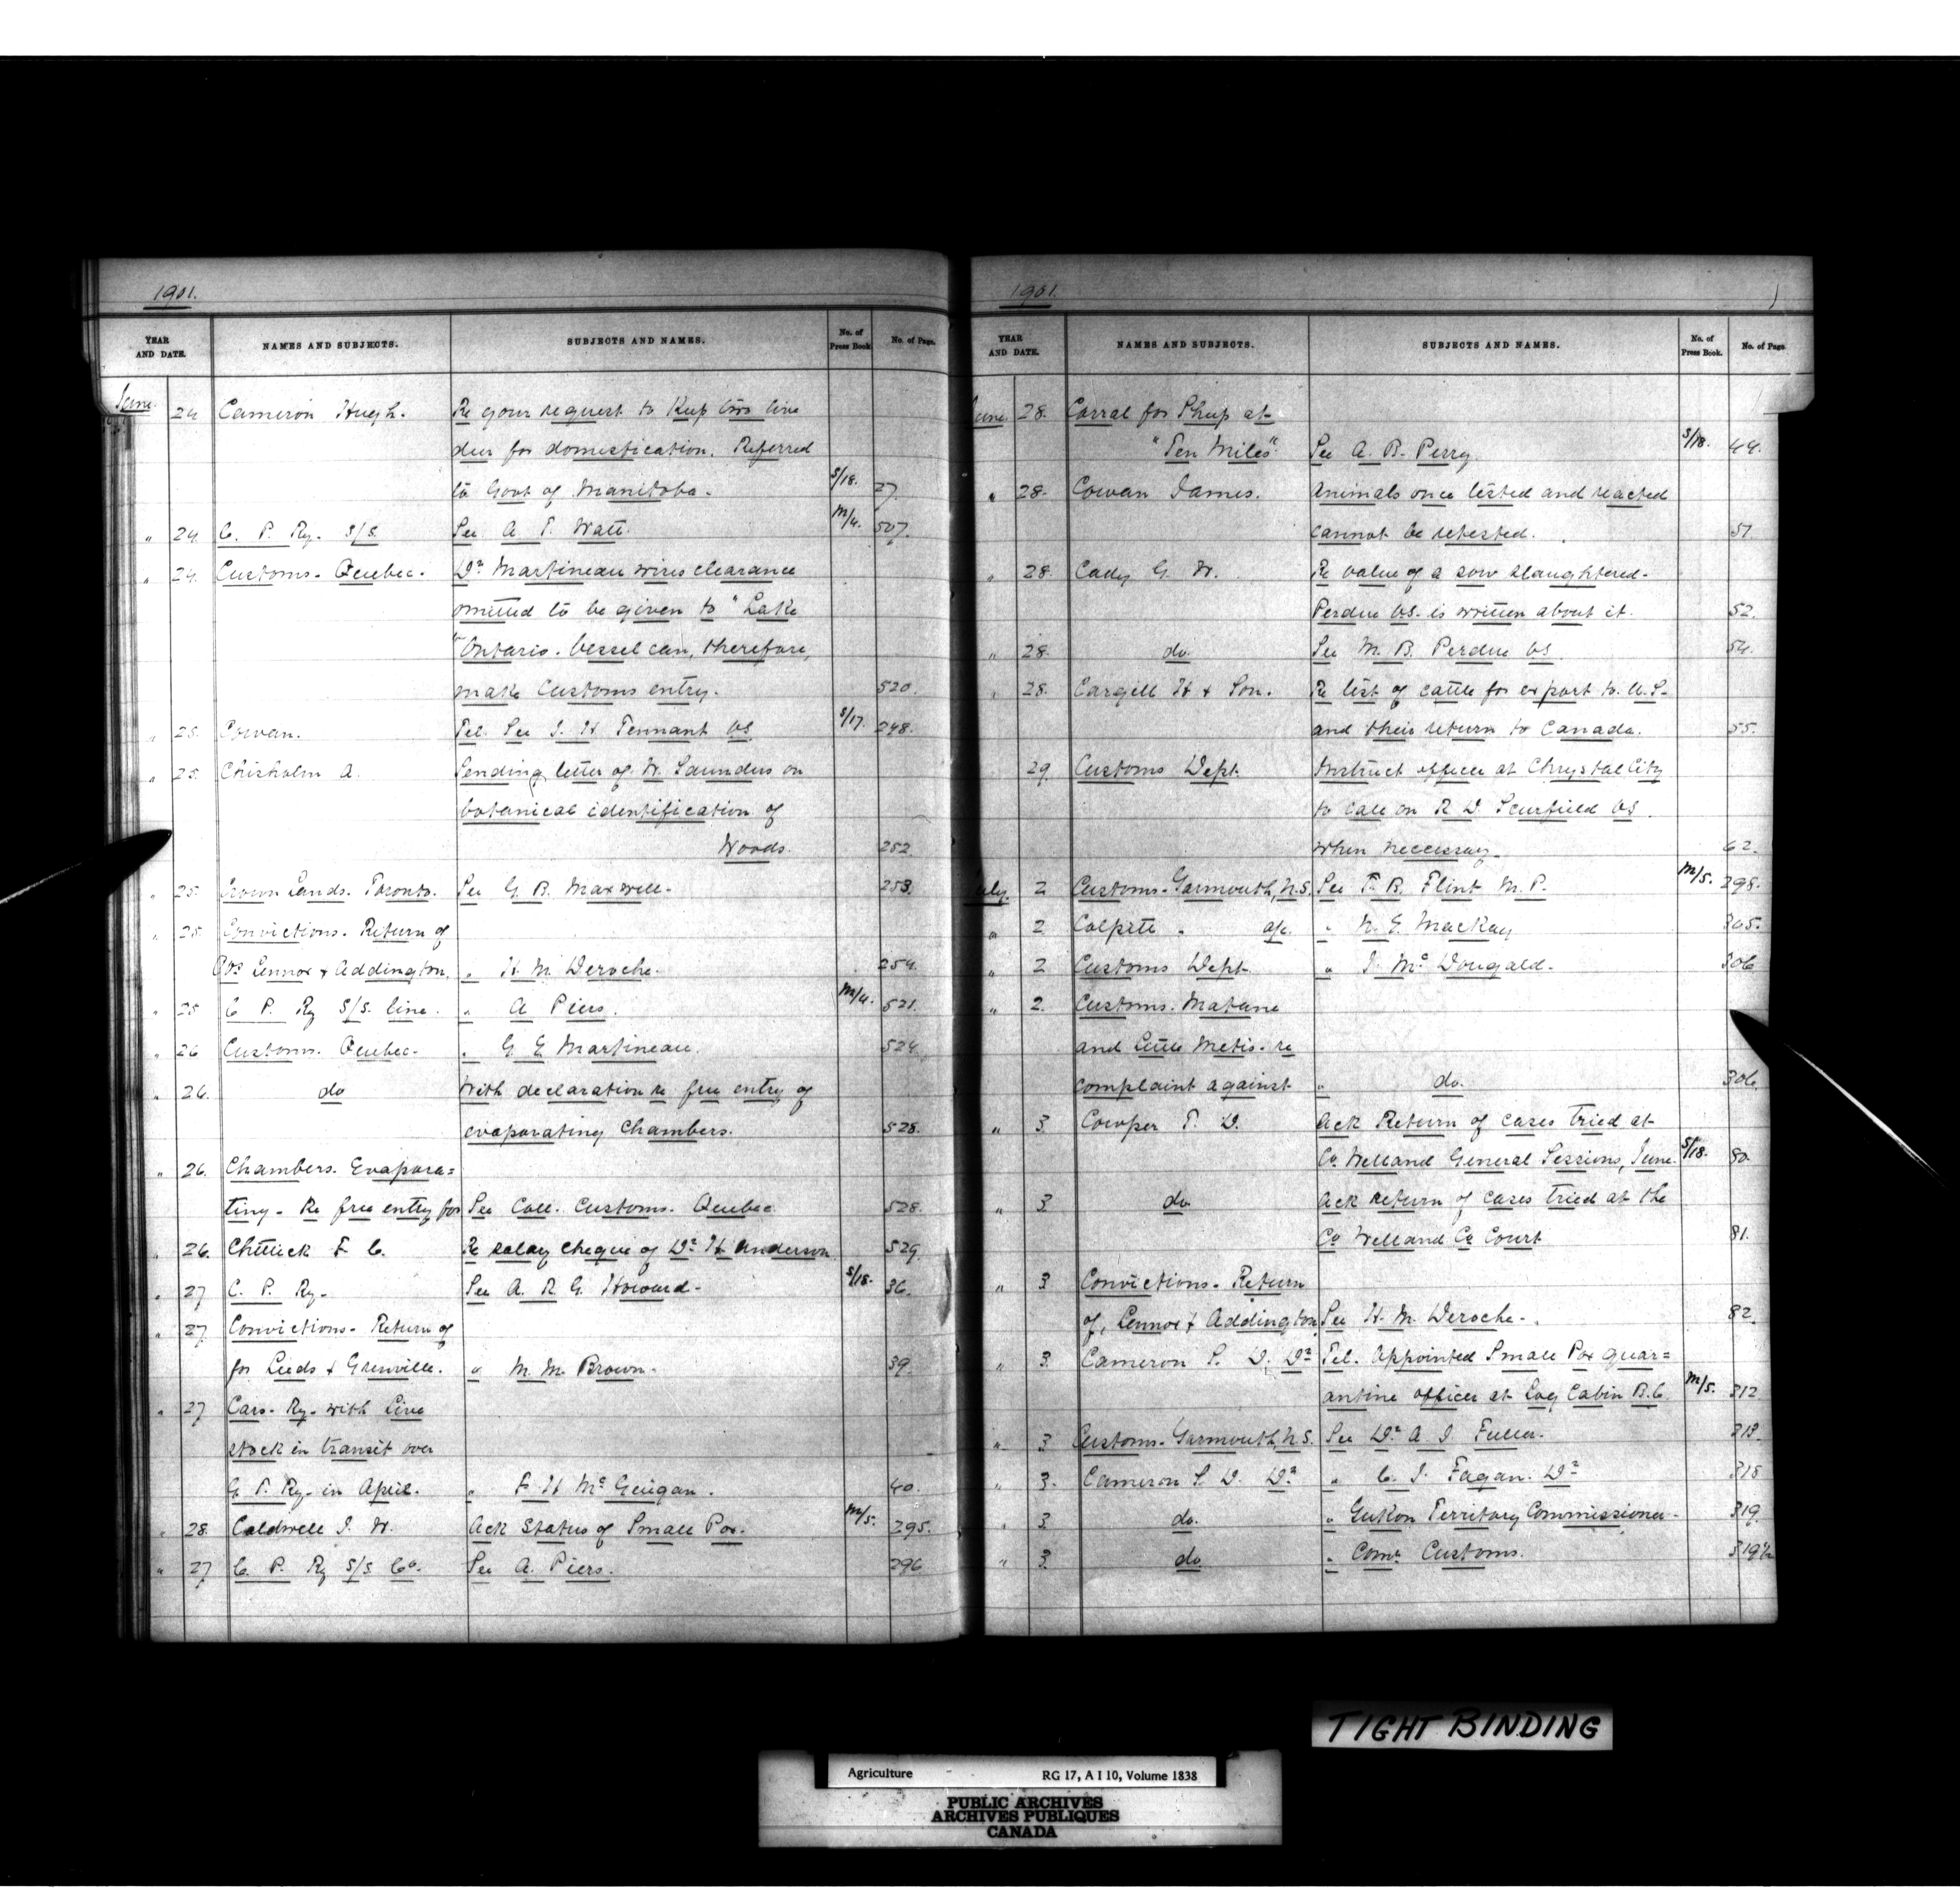 1901.
YEAR AND DATE. NAMES AND SUBJECTS. SUBJECTS AND NAMES. No. of Press Book. No. of Page.
June. 24 Cameron Hugh. Re your request to keep two live
deer for domestication. Referred
to Govt of Manitoba. S/18. 27.
" 24 C. P. Ry. S/S. See A. T. Watt. M/4. 507.
" 24. Customs. Quebec. Dr Martineau wires clearance
omitted to be given to "Lake
"Ontario. Vessel can, therefore,
make Customs entry. 520.
" 25. Cowan. Tel. See J. H. Tennant VS S/17. 248.
" 25. Chisholm A. Sending letter of W. Saunders on
botanical identification of
Woods. 252.
" 25. Crown Lands. Toronto. See G. B. Maxwell. 253.
" 25. Convictions. Return of
Cos Lennox & Addington. " H. M. Deroche. 254.
" 25 C P. Ry S/S. line. " A Piers. M/4. 521.
" 26 Customs. Quebec. " G E Martineau. 524.
" 26. do With declaration re free entry of
evaporating Chambers. 528.
" 26. Chambers. Evapora=
ting. Re free entry for See Coll. Customs. Quebec. 528.
" 26. Chittick F. C. Re salary cheque of Dr H Anderson 529.
" 27 C. P. Ry. See A. R. G. Howard. S/18. 36.
" 27 Convictions. Return of
for Leeds & Grenville. " M. M. Brown. 39.
" 27 Cars. Ry. with Live
stock in transit over
G. T. Ry. in April. " F. H McGuigan. 40.
" 28. Caldwell J. W. Ack Status of Small Pox. M/5. 295.
" 27 C. P. Ry S/S Co. See A. Piers. 296
1901.
YEAR AND DATE. NAMES AND SUBJECTS. SUBJECTS AND NAMES. No. of Press Book. No. of Page
June. 28. Corral for Sheep at
"Ten Miles" See A. B. Perry S/18. 44.
" 28. Cowan James. Animals once tested and reacted
cannot be retested. 51.
" 28. Cady G. W. Re value of a sow slaughtered.
Perdue VS. is written about it. 52.
" 28. do. See M. B. Perdue VS. 54.
" 28. Cargill H & Son. Re list of cattle for export to U. S.
and their return to Canada. 55.
29. Customs Dept. Instruct officer at Chrystal City
to call on R D Scurfield VS.
when necessary. 62.
July. 2 Customs. Yarmouth, N.S. See T. B. Flint M. P. M/5. 298.
" 2 Colpitts " a/c. " N. E. MacKay 305.
" 2 Customs Dept. " J. McDougald. 306
" 2. Customs. Matane
and Little Metis. re
complaint against " do. 306.
" 3. Cowper T. D. Ack Return of cases tried at
Co. Welland General Sessions, June. S/18. 80.
" 3 do. Ack return of cases tried at the
Co Welland Co Court 81.
" 3 Convictions. Return
of, Lennox & Addington. See H. M. Deroche. 82.
" 3. Cameron S. D. Dr Tel. Appointed Small Pox quar=
antine officer at Log Cabin B.C. M/5. 312
" 3 Customs. Yarmouth, N.S. See Dr A J Fuller. 313.
" 3. Cameron S. D. Dr " C. J. Fagan. Dr 318
" 3 do. " Yukon Territory Commissioner. 319.
" 3. do. " Comr Customs. 319½
TIGHT BINDING
Agriculture RG 17, A I 10, Volume 1838
PUBLIC ARCHIVES
ARCHIVES PUBLIQUES
CANADA